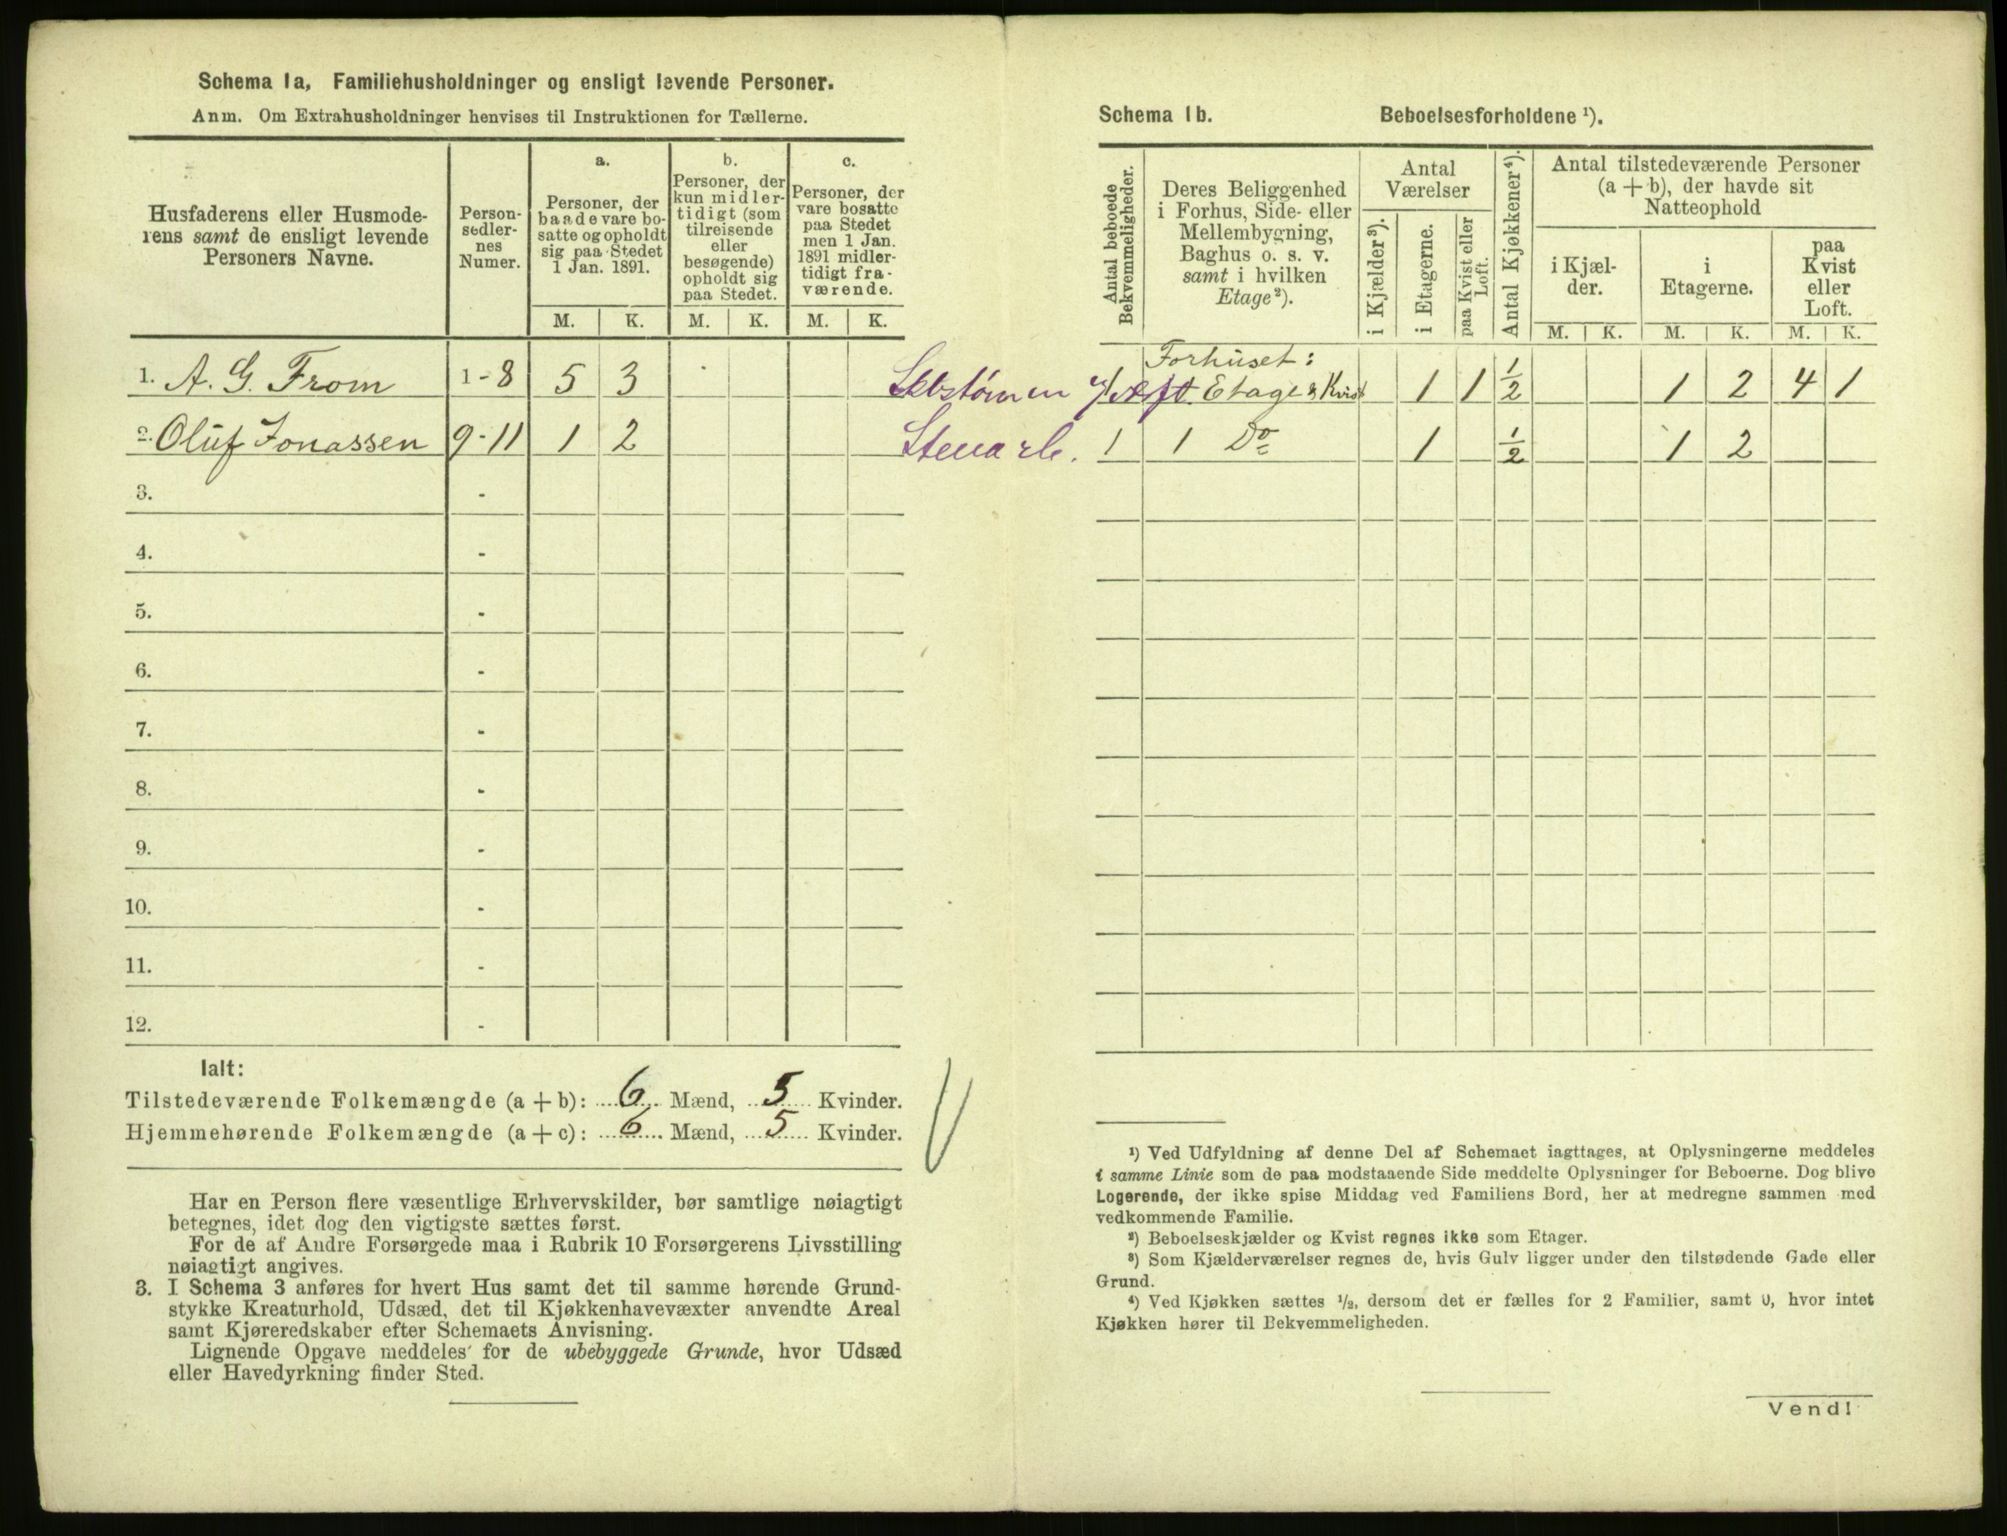 Schema 1a, Familiehusholdninger og ensligt levende Personer.
Anm. Om Extrahusholdninger henvises til Instruktionen for Tællerne.
Husfaderens eller Husmode-
rens samt de ensligt levende
Personers Navne.
Person-
sedler-
nes
Numer.
a.
Personer, der
baade vare bo-
satte og opholdt
sig paa Stedet
1 Jan. 1891.
b.
Personer, der
kun midler-
tidigt (som
tilreisende
eller
besøgende)
opholdt sig
paa Stedet.
c.
Personer, der
vare bosatte
paa Stedet
men 1 Jan.
1891 midler-
tidigt fra-
værende.
M. K. M. K. M. K.
1. A. G. From 1-8 5 3
2. Oluf Jonassen 9-11 1 2
3. -
4. -
5. -
6. -
7. -
8. -
9. -
10. -
11. -
12. -
Ialt:
Tilstedeværende Folkemængde (a + b): 6 Mænd, 5 Kvinder.
Hjemmehørende Folkemængde (a + c): 6 Mænd, 5 Kvinder.
Har en Person flere væsentlige Erhvervskilder, bør samtlige nøiagtigt
betegnes, idet dog den vigtigste sættes først.
For de af Andre Forsørgede maa i Rubrik 10 Forsørgerens Livsstilling
nøiagtigt angives.
3. I Schema 3 anføres for hvert Hus samt det til samme hørende Grund-
stykke Kreaturhold, Udsæd, det til Kjøkkenhavevæxter anvendte Areal
samt Kjøreredskaber efter Schemaets Anvisning.
Lignende Opgave meddeles for de ubebyggede Grunde, hvor Udsæd
eller Havedyrkning finder Sted.
Schema 1b. Beboelsesforholdene ¹).
Antal beboede
Bekvemmeligheder.
Deres Beliggenhed
i Forhus, Side- eller
Mellembygning,
Baghus o. s. v.
samt i hvilken
Etage²).
Antal
Værelser
i Kjælder³).
i Etagerne.
paa Kvist eller
Loft.
Antal Kjøkkener⁴).
Antal tilstedeværende Personer
(a + b), der havde sit
Natteophold
i Kjæl-
der.
i
Etagerne.
paa
Kvist
eller
Loft.
M. K. M. K. M. K.
Forhuset:
Etage & Kvist 1 1 ½ 1 2 4 1
Stenarb. 1 1 Do 1 ½ 1 2
¹) Ved Udfyldning af denne Del af Schemaet iagttages, at Oplysningerne meddeles
i samme Linie som de paa modstaaende Side meddelte Oplysninger for Beboerne. Dog blive
Logerende, der ikke spise Middag ved Familiens Bord, her at medregne sammen med
vedkommende Familie.
²) Beboelseskjælder og Kvist regnes ikke som Etager.
³) Som Kjælderværelser regnes de, hvis Gulv ligger under den tilstødende Gade eller
Grund.
⁴) Ved Kjøkken sættes ½, dersom det er fælles for 2 Familier, samt 0, hvor intet
Kjøkken hører til Bekvemmeligheden.
Vend!